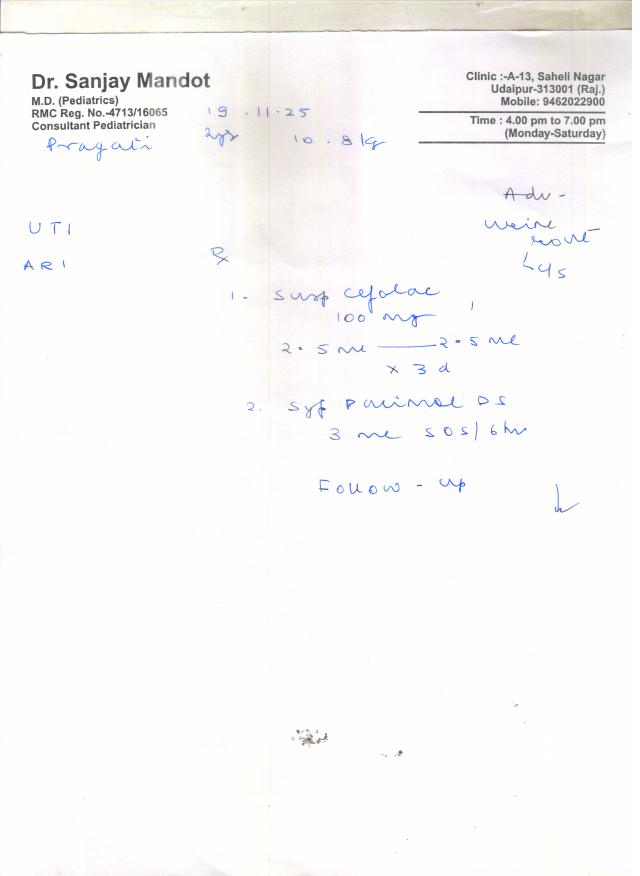 Dr. Sanjay Mandot
M.D. (Pediatrics)
RMC Reg. No.-4713/16065
Consultant Pediatrician
Clinic :-A-13, Saheli Nagar
Udaipur-313001 (Raj.)
Mobile: 9462022900
Time : 4.00 pm to 7.00 pm
(Monday-Saturday)
19.11.25
Pragati 2yr 10.8 kg
Adv -
Urine rout
c/s
UTI
ARI
Rx
1. Susp Cefolac
100 mg
2.5 ml — 2.5 ml
x 3 d
2. Syp DS
3 ml SOS/6hr
Follow - up